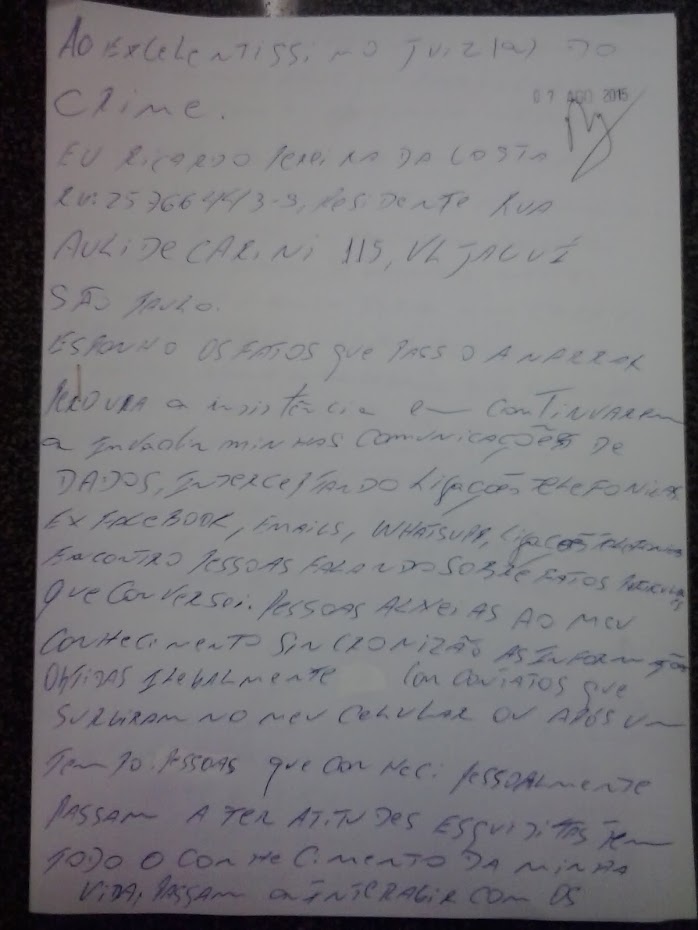 Ao Excelentissimo Juiz(a) do
Crime.
07 AGO 2015
EU RICARDO PEREIRA DA COSTA
RESIDENTE RUA
CARINI 115, VL JACUÍ
SÃO PAULO.
ESPONHO OS FATOS QUE PASSO A NARRAR
PERDURA a insistência em CONTINUAREM
a INVADIR MINHAS COMUNICAÇÕES DE
DADOS, INTERCEPTANDO LIGAÇÕES TELEFONICAS
EX FACEBOOK, EMAILS, WHATSUPP, LIGAÇÕES TELEFONICAS
ENCONTRO PESSOAS FALANDO SOBRE FATOS PARTICULARES
QUE CONVERSEI. PESSOAS ALHEIAS AO MEU
CONHECIMENTO SINCRONIZÃO AS INFORMAÇÕES
OBTIDAS ILEGALMENTE COM CONTATOS QUE
SURGIRAM NO MEU CELULAR OU APÓS UM
TEMPO. PESSOAS QUE CONHECI PESSOALMENTE
PASSAM A TER ATITUDES ESQUISITAS TEM
TODO O CONHECIMENTO DA MINHA
VIDA, PASSAM a INTERAGIR COM OS